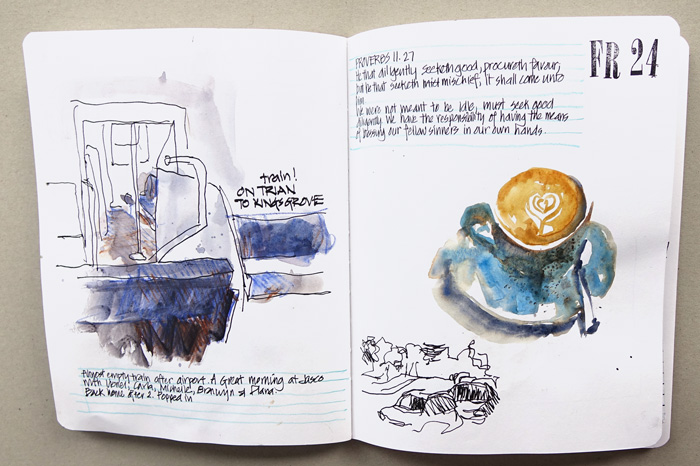 train!
ON TRIAN
TO KINGSGROVE
Almost empty train after airport. A Great morning at Jasco
with Carla, Michelle, Bronwyn &
Back home after 2. Popped in
FR 24
PROVERBS 11. 27
He that diligently seeketh good, procureth favour;
but he that seeketh mischief, it shall come unto
him
We were not meant to be idle, must seek good
diligently. We have the responsibility of having the means
of blessing our fellow sinners in our own hands.